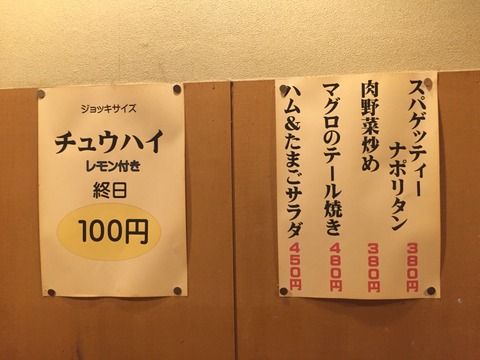 ジョッキサイズ
チュウハイ
レモン付き
終日
100円
スパゲッティー
ナポリタン 380円
肉野菜炒め 380円
マグロのテール焼き 480円
ハム&たまごサラダ 450円